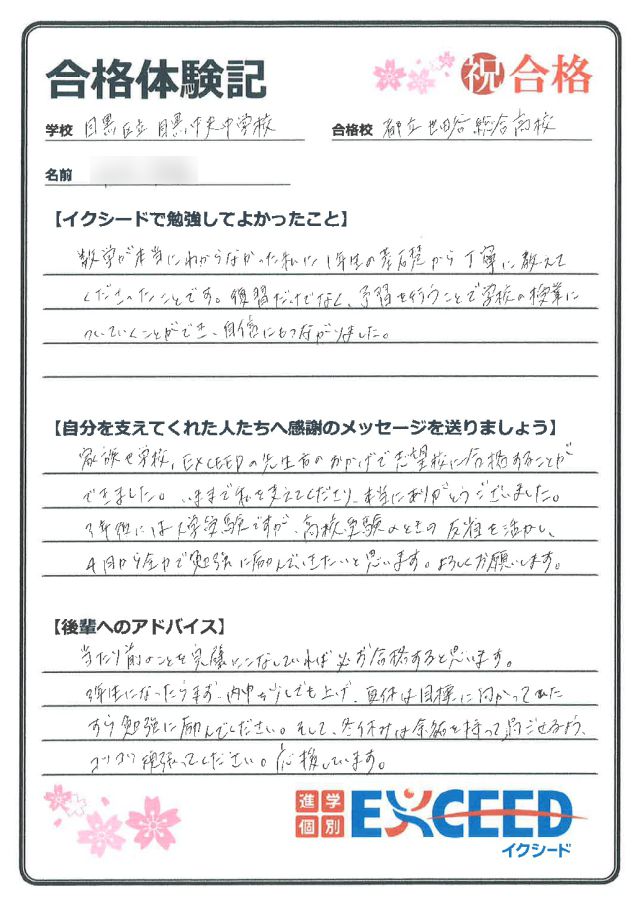 合格体験記
祝 合格
学校 目黒区立 目黒中央中学校
合格校 都立世田谷総合高校
名前
【イクシードで勉強してよかったこと】
数学が本当にわからなかった私に1年生の基礎から丁寧に教えて
くださったことです。復習だけでなく、予習も行うことで学校の授業に
ついていくことができ、自信にもつながりました。
【自分を支えてくれた人たちへ感謝のメッセージを送りましょう】
家族や学校、EXCEEDの先生方のおかげで志望校に合格することが
できました。いままで私を支えてくださり、本当にありがとうございました。
3年後には大学受験ですが、高校受験のときの反省を活かし、
4月から全力で勉強に励んでいきたいと思います。よろしくお願いします。
【後輩へのアドバイス】
当たり前のことを完璧にこなしていれば必ず合格すると思います。
3年生になったらまず、内申を少しでも上げ、夏休は目標に向かってひた
すら勉強に励んでください。そして、冬休みは余裕を持って過ごせるよう、
コツコツ頑張ってください。応援しています。
進学
個別
EXCEED
イクシード